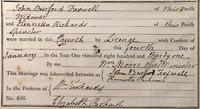 John Burford Foxwell of this Parish
Widower
and Kerenella Richards of this Parish
Spinster
were married in this Church by License with Consent of
this fourth Day of
January in the Year One thousand eight hundred and thirty one
By me Wm Moore
This Marriage was solemnized between us John Burford Foxwell
In the Presence of Richards
Elizabeth Richards
No. 456.